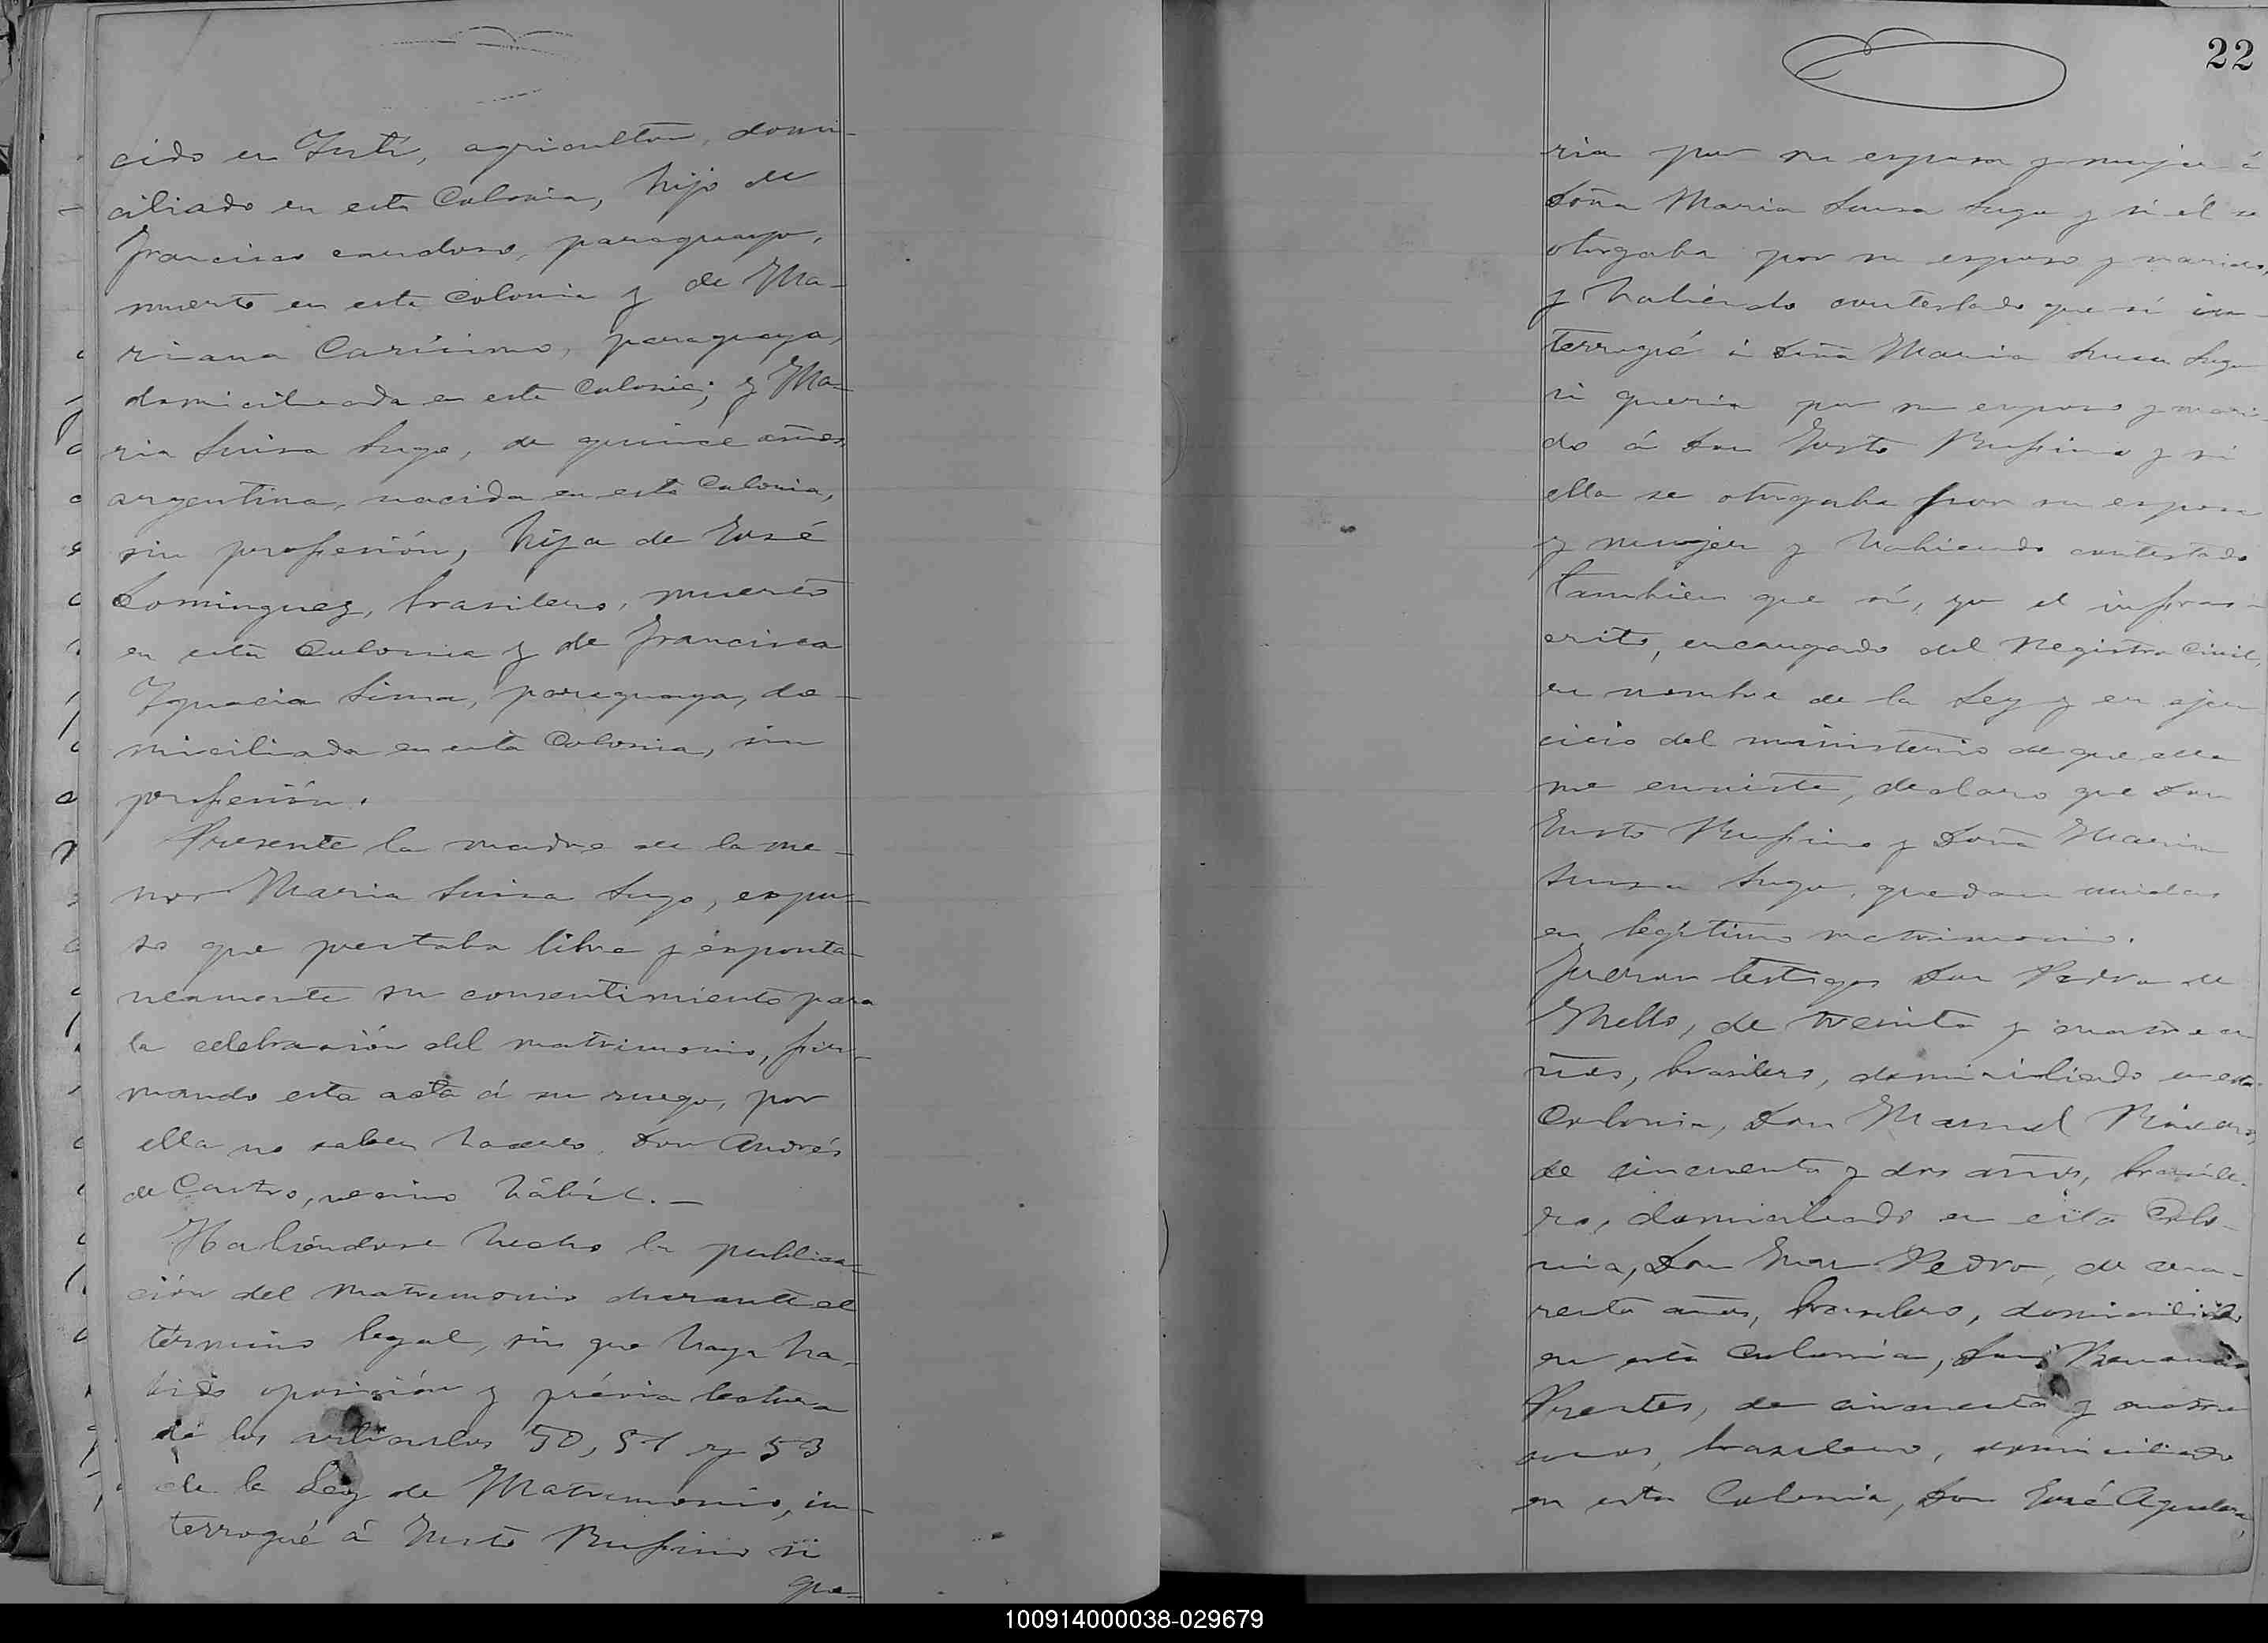 cido en Yutí, agricultor, domi-
ciliado en esta Colonia, hijo de
Francisco cardoso, paraguayo,
muerto en esta Colonia y de Ma-
riana Carísimo, paraguaya,
domiciliada en esta Colonia; y Ma-
ria Luisa Lugo, de quince años,
argentina, nacida en esta Colonia,
sin profesión, hija de José
Dominguez, brasilero, muerto
en esta Colonia y de Francisca
Ignacia Lima, paraguaya, do-
miciliada en esta Colonia, sin
profesión.
Presente la madre de la me-
nor Maria Luisa Lugo, expu-
so que prestaba libre y exponta-
neamente su consentimiento para
la celebración del matrimonio, fir-
mando esta acta á su ruego, por
ella no saber hacerlo, Don Andrés
de Castro, vecino hábil. —
Habiéndose hecho la publica-
ción del matrimonio durante el
término legal, sin que haya ha-
bido oposición y prévia lectura
de los artículos 50, 51 y 53
de la Ley de Matrimonio, in-
terrogué á Justo Rufino si
que-
22
ria por su esposa y mujer á
Doña Maria Luisa Lugo y si él se
otorgaba por su esposo y marido,
y habiendo contestado que sí in-
terrogué á Doña Maria Luisa Lugo
si queria por su esposo y mari-
do á Don Justo Rufino y si
ella se otorgaba por su esposa
y mujer y habiendo contestado
tambien que sí, yo el infras-
crito, encargado del Registro Civil,
en nombre de la Ley y en ejer-
cicio del ministerio de que ella
me enviste, declaro que Don
Justo Rufino y Doña Maria
Luisa Lugo, quedan unidos
en legítimo matrimonio.
Fueron testigos Don Pedro de
Mello, de treinta y cuatro a-
ños, brasilero, domiciliado en esta
Colonia, Don Manuel
de cincuenta y dos años, brasile-
ro, domiciliado en esta Colo-
nia, Don Juan Pedro, de cua-
renta años, brasilero, domiciliado
en esta Colonia, Don
Prestes, de cincuenta y cuatro
años, brasilero, domiciliado
en esta Colonia, Don José Aguilera,
100914000038-029679